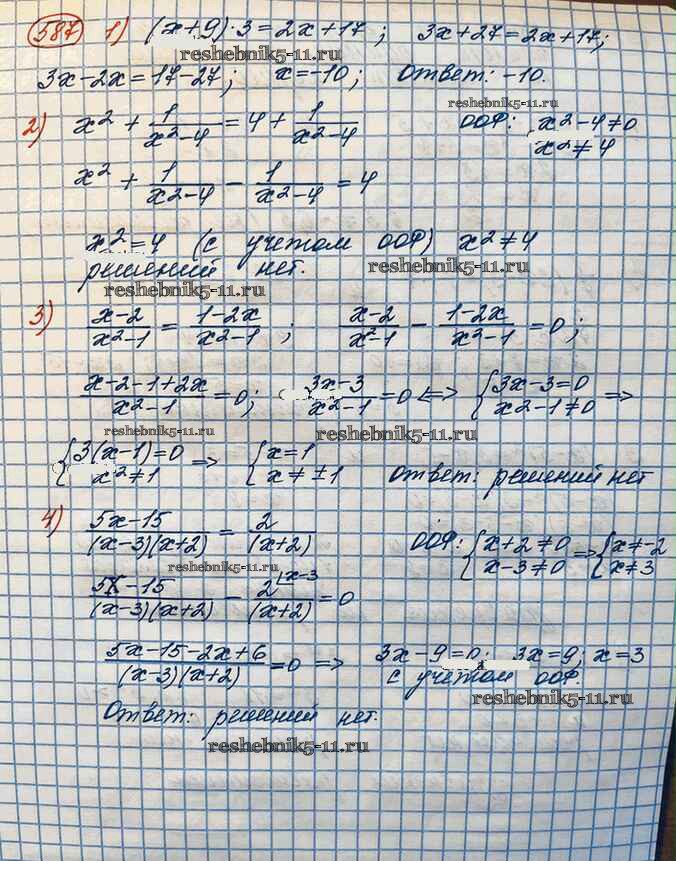 587 1) (x+9)·3=2x+17; 3x+27=2x+17;
reshebnik5-11.ru
3x-2x=17-27; x=-10; ответ: -10.
reshebnik5-11.ru
2) x²+1/(x²-4)=4+1/(x²-4) ООФ: x²-4≠0
x²≠4
x²+1/(x²-4)-1/(x²-4)=4
x²=4 (с учетом ООФ) x²≠4
решений нет. reshebnik5-11.ru
reshebnik5-11.ru
3) (x-2)/(x²-1)=(1-2x)/(x²-1); (x-2)/(x²-1)-(1-2x)/(x²-1)=0;
(x-2-1+2x)/(x²-1)=0; (3x-3)/(x²-1)=0 <=> {3x-3=0
x²-1≠0 =>
reshebnik5-11.ru reshebnik5-11.ru
{3(x-1)=0
x²≠1 => {x=1
x≠±1 ответ: решений нет
4) (5x-15)/((x-3)(x+2))=2/(x+2) ООФ: {x+2≠0
x-3≠0 => {x≠-2
x≠3
reshebnik5-11.ru
(5x-15)/((x-3)(x+2))-2⌊x-3/(x+2)=0
(5x-15-2x+6)/((x-3)(x+2))=0 => 3x-9=0; 3x=9; x=3
с учетом ООФ.
reshebnik5-11.ru
Ответ: решений нет.
reshebnik5-11.ru